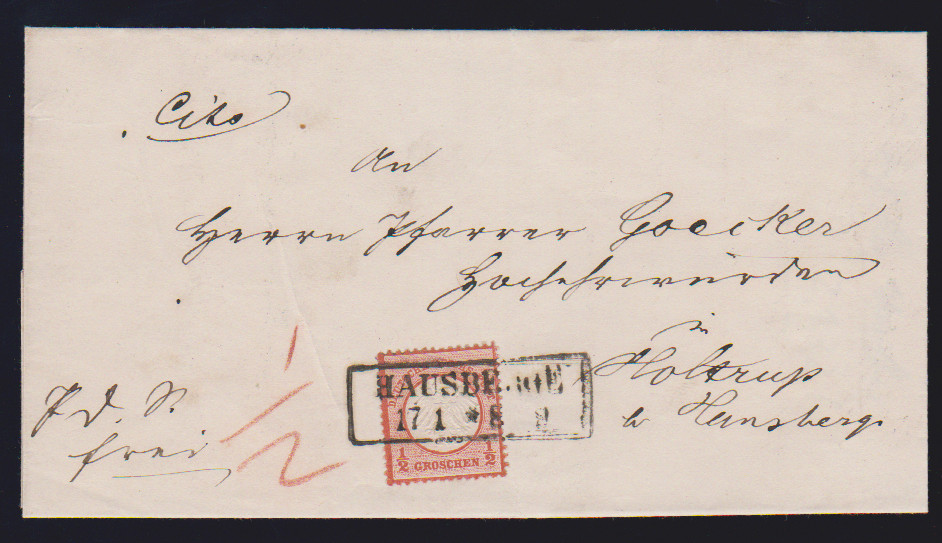 Cito
An
Herrn Pfarrer Goecker
Hochehrwürden
in
Holtrup
b Hausberge
P. d. S.
frei
1/2
HAUSBERGE
17 1 * 8
½ GROSCHEN ½